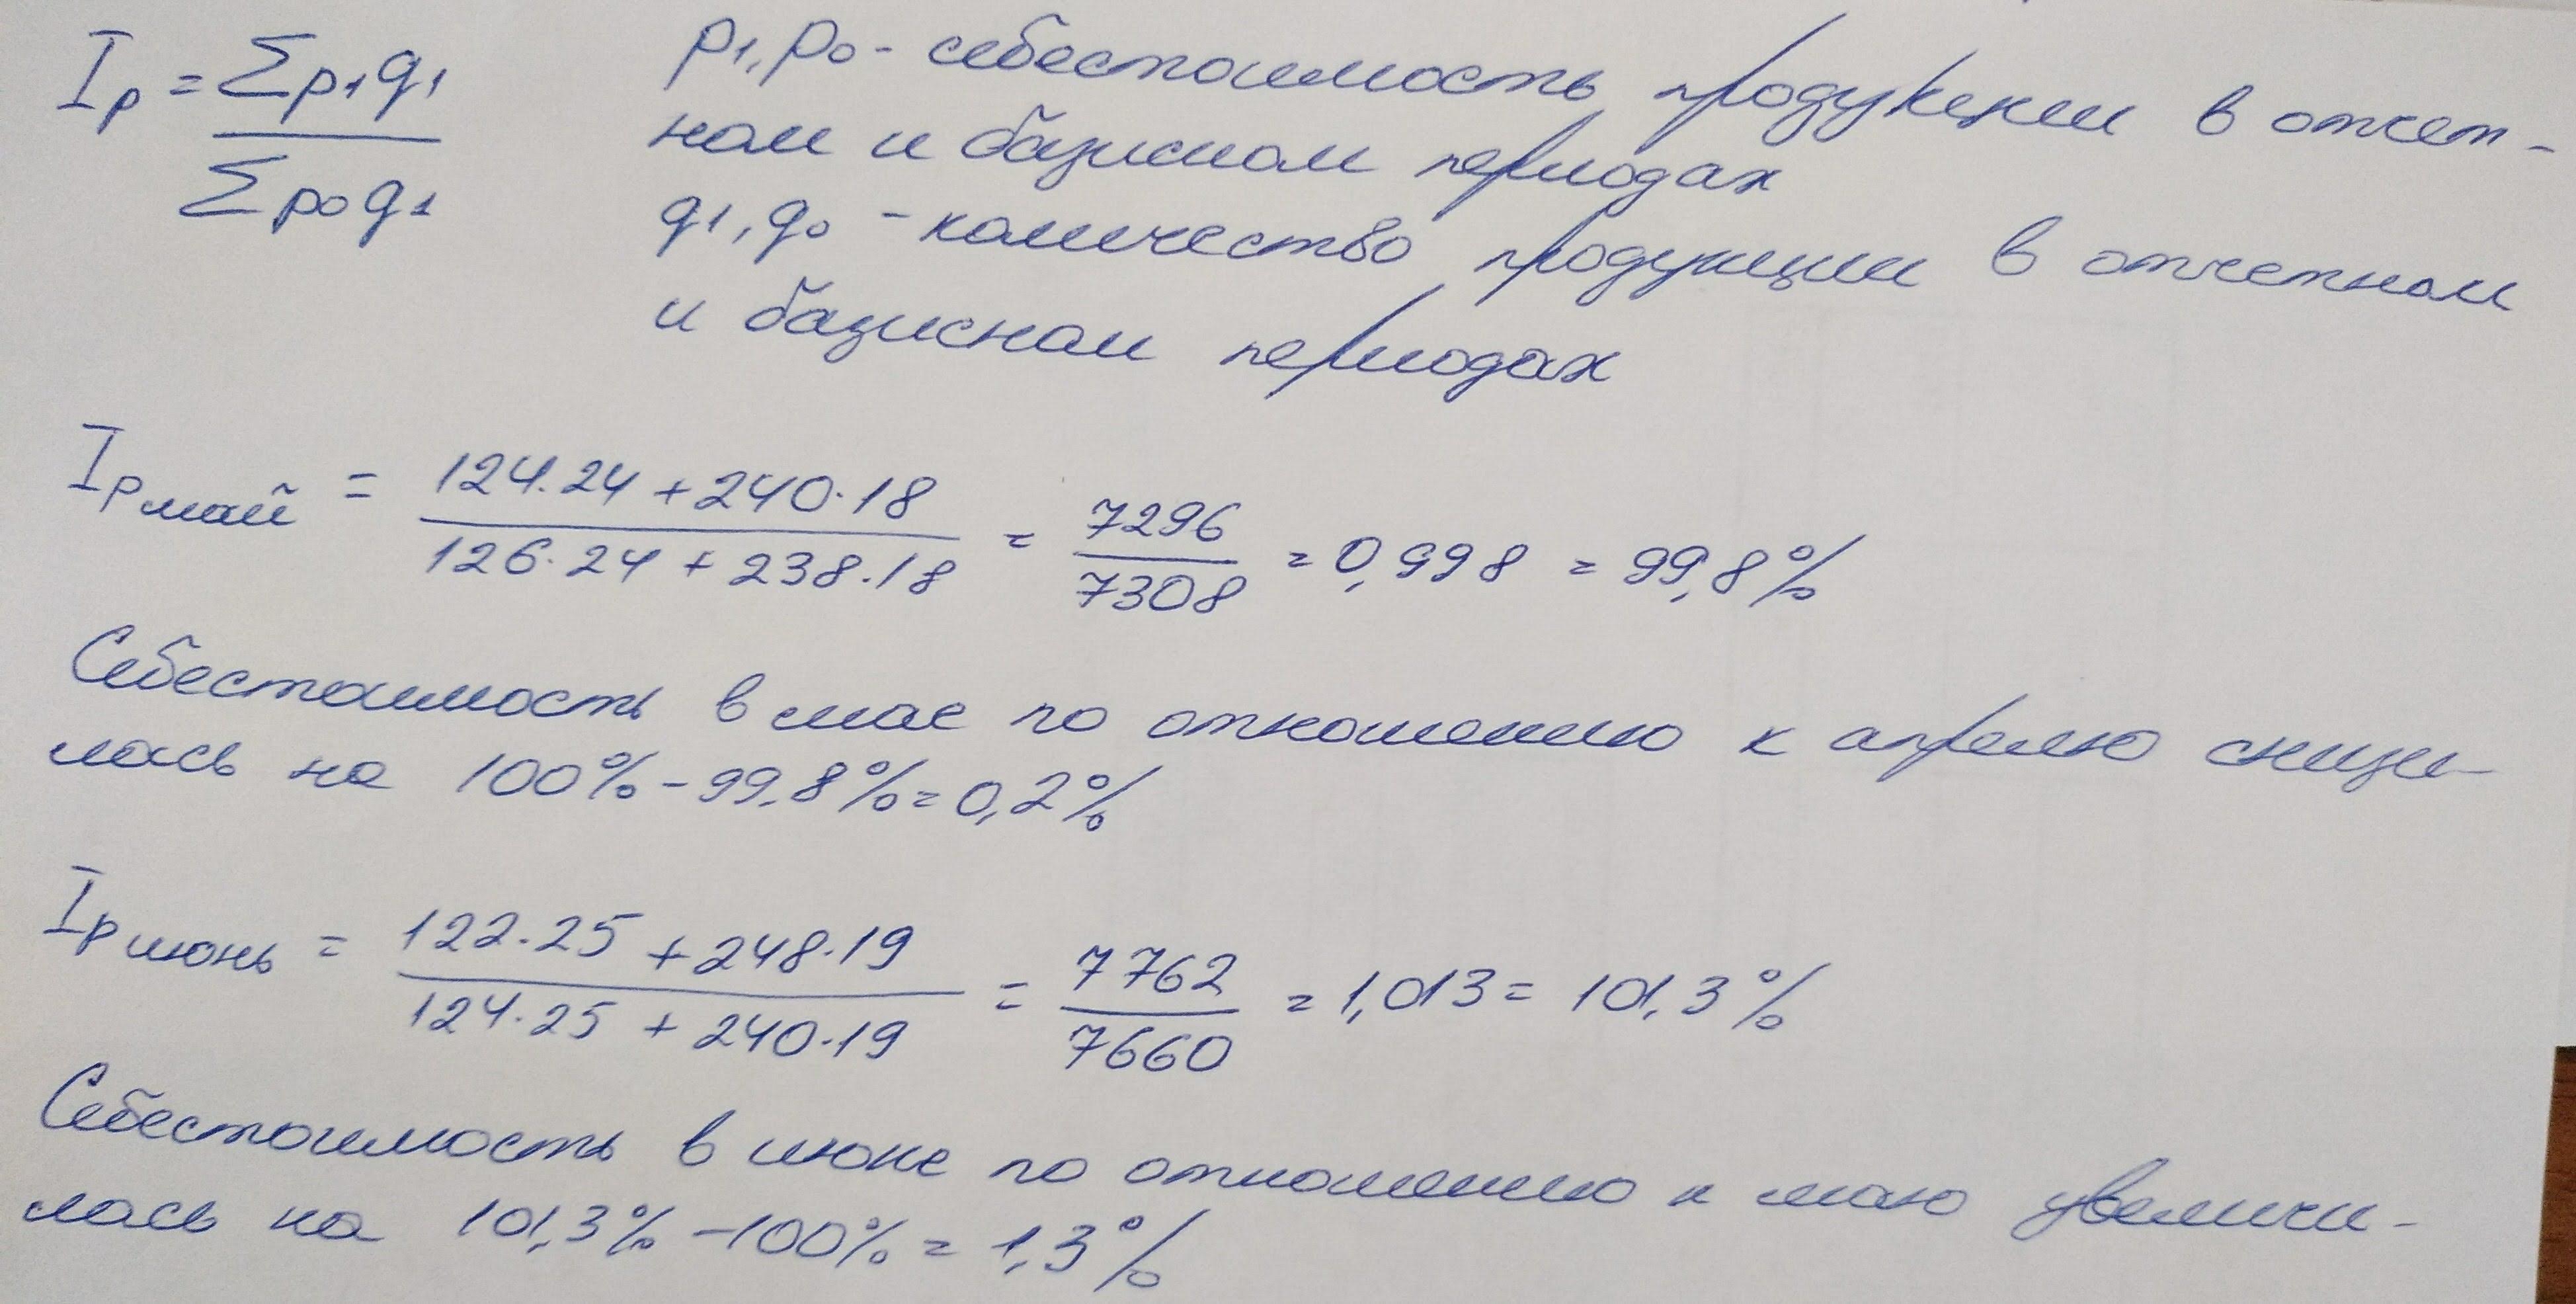 Ip = Σp₁q₁ / Σp₀q₁
p₁, p₀ - себестоимость продукции в отчет-
ном и базисном периодах
q₁, q₀ - количество продукции в отчетном
и базисном периодах
Ip май = (124·24 + 240·18) / (126·24 + 238·18) = 7296 / 7308 = 0,998 = 99,8%
Себестоимость в мае по отношению к апрелю снизи-
лась на 100% - 99,8% = 0,2%
Ip июнь = (122·25 + 248·19) / (124·25 + 240·19) = 7762 / 7660 = 1,013 = 101,3%
Себестоимость в июне по отношению к маю увеличи-
лась на 101,3% - 100% = 1,3%